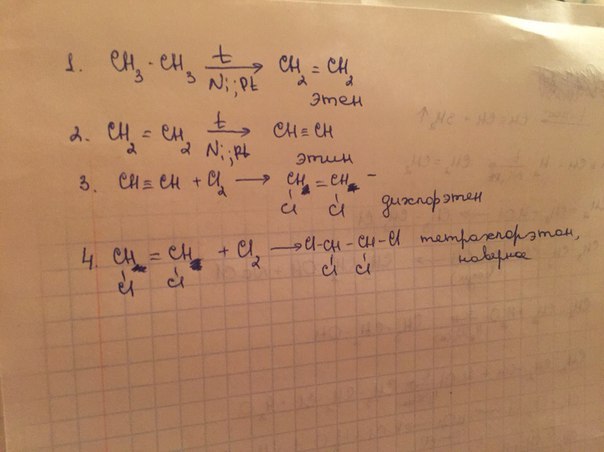 1. CH₃-CH₃ t Ni; Pt → CH₂=CH₂
этен
2. CH₂=CH₂ t Ni; Pt → CH≡CH
этин
3. CH≡CH + Cl₂ → CH=CH -
Cl Cl
дихлорэтен
4. CH=CH + Cl₂ → Cl-CH-CH-Cl тетрахлорэтан,
Cl Cl Cl Cl наверное